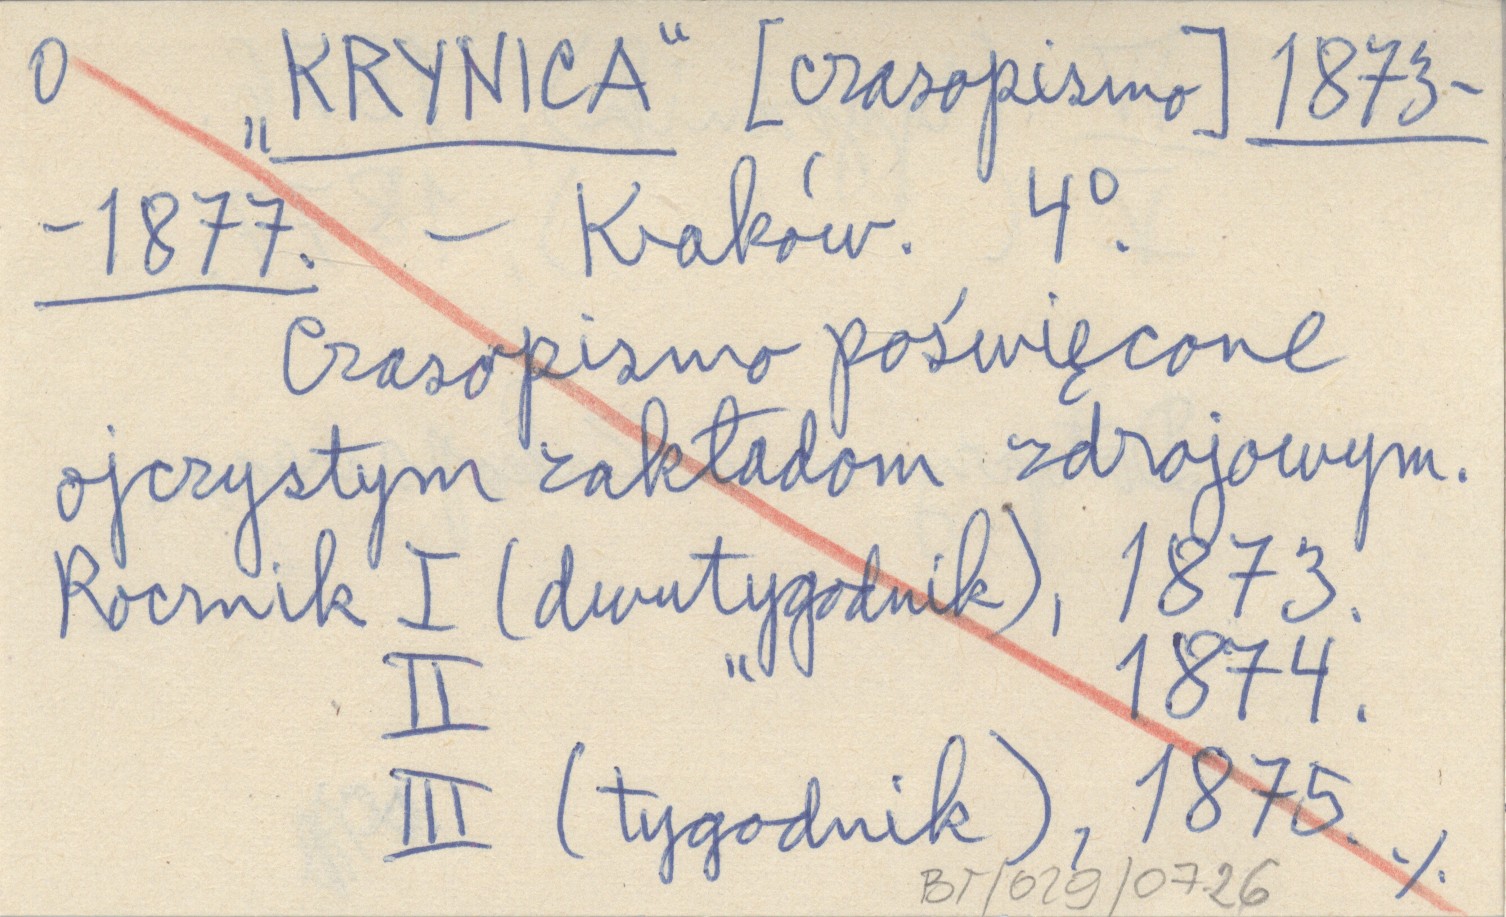 0 „KRYNICA“ [czasopismo] 1873-
-1877. - Kraków. 4⁰.
Czasopismo poświęcone
ojczystym zakładom zdrojowym.
Rocznik I (dwutygodnik), 1873.
II „ 1874.
III (tygodnik), 1875. ./.
BT/029/0726